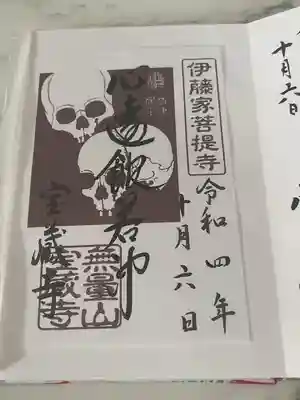 伊藤家菩提寺
令和四年
十月六日
心遠館若冲
宝蔵寺
無量山
宝蔵寺
十月六日